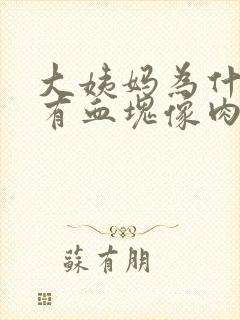 大姨妈为什
有血塊像肉
蘇有朋